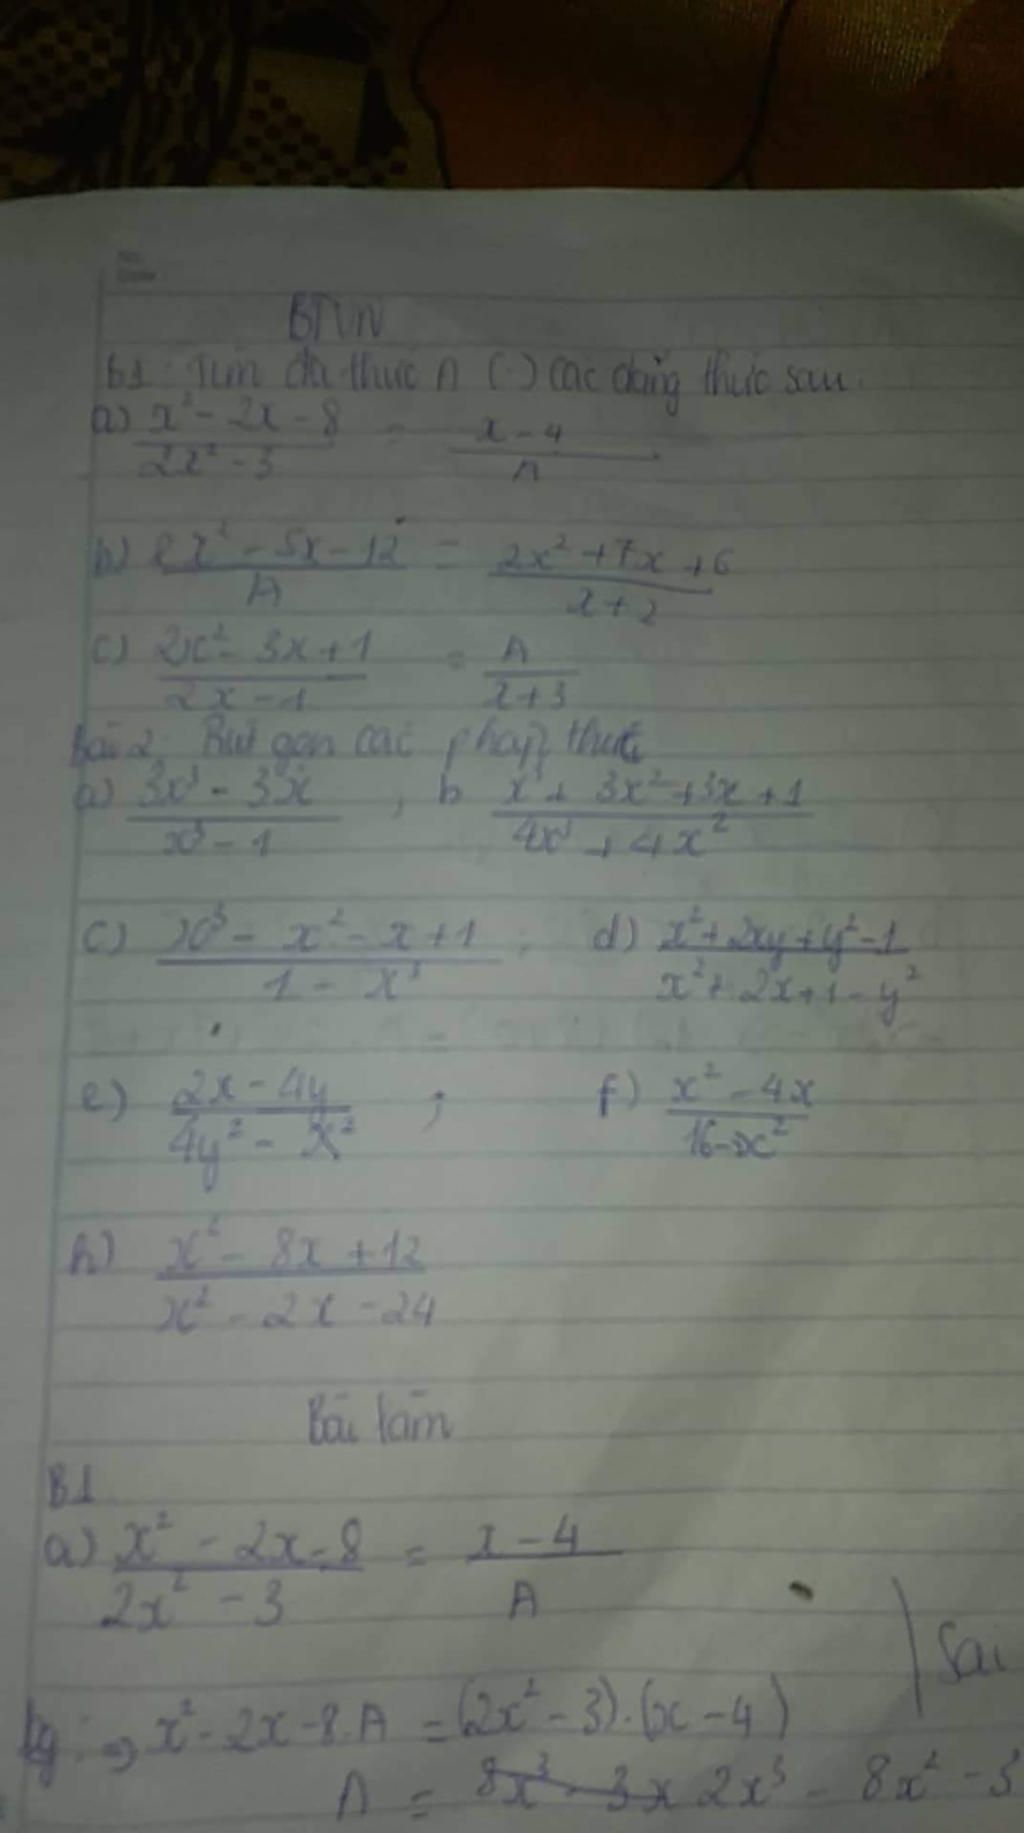 No.
Date
BTVN
b1: Tìm đa thức A (.) các đẳng thức sau.
a) \frac{x² - 2x - 8}{2x² - 3} = \frac{x - 4}{A}
b) \frac{2x² - 5x - 12}{A} = \frac{2x² + 7x + 6}{x + 2}
c) \frac{2x² - 3x + 1}{2x - 1} = \frac{A}{x + 3}
Bài 2. Rút gọn các phân thức
a) \frac{3x³ - 3x}{x³ - 1} , b \frac{x³ + 3x² + 3x + 1}{4x³ + 4x²}
c) \frac{x³ - x² - x + 1}{1 - x³} ; d) \frac{x² + 2xy + y² - 1}{x² + 2x + 1 - y²}
e) \frac{2x - 4y}{4y² - x²} ; f) \frac{x² - 4x}{16 - x²}
h) \frac{x² - 8x + 12}{x² - 2x - 24}
Bài làm
B1
a) \frac{x² - 2x - 8}{2x² - 3} = \frac{x - 4}{A}
Sai
⇒ x² - 2x - 8. A = (2x² - 3).(x - 4)
A = 2x³ - 8x² - 3